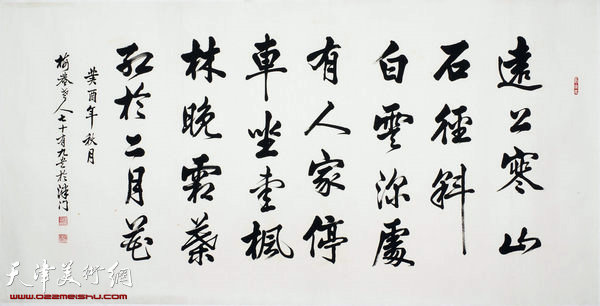 遠上寒山
石徑斜
白雲深處
有人家停
車坐愛楓
林晚霜葉
红於二月花
癸酉年秋月
老人七十有九书於津门
天津美術網
www.022meishu.com